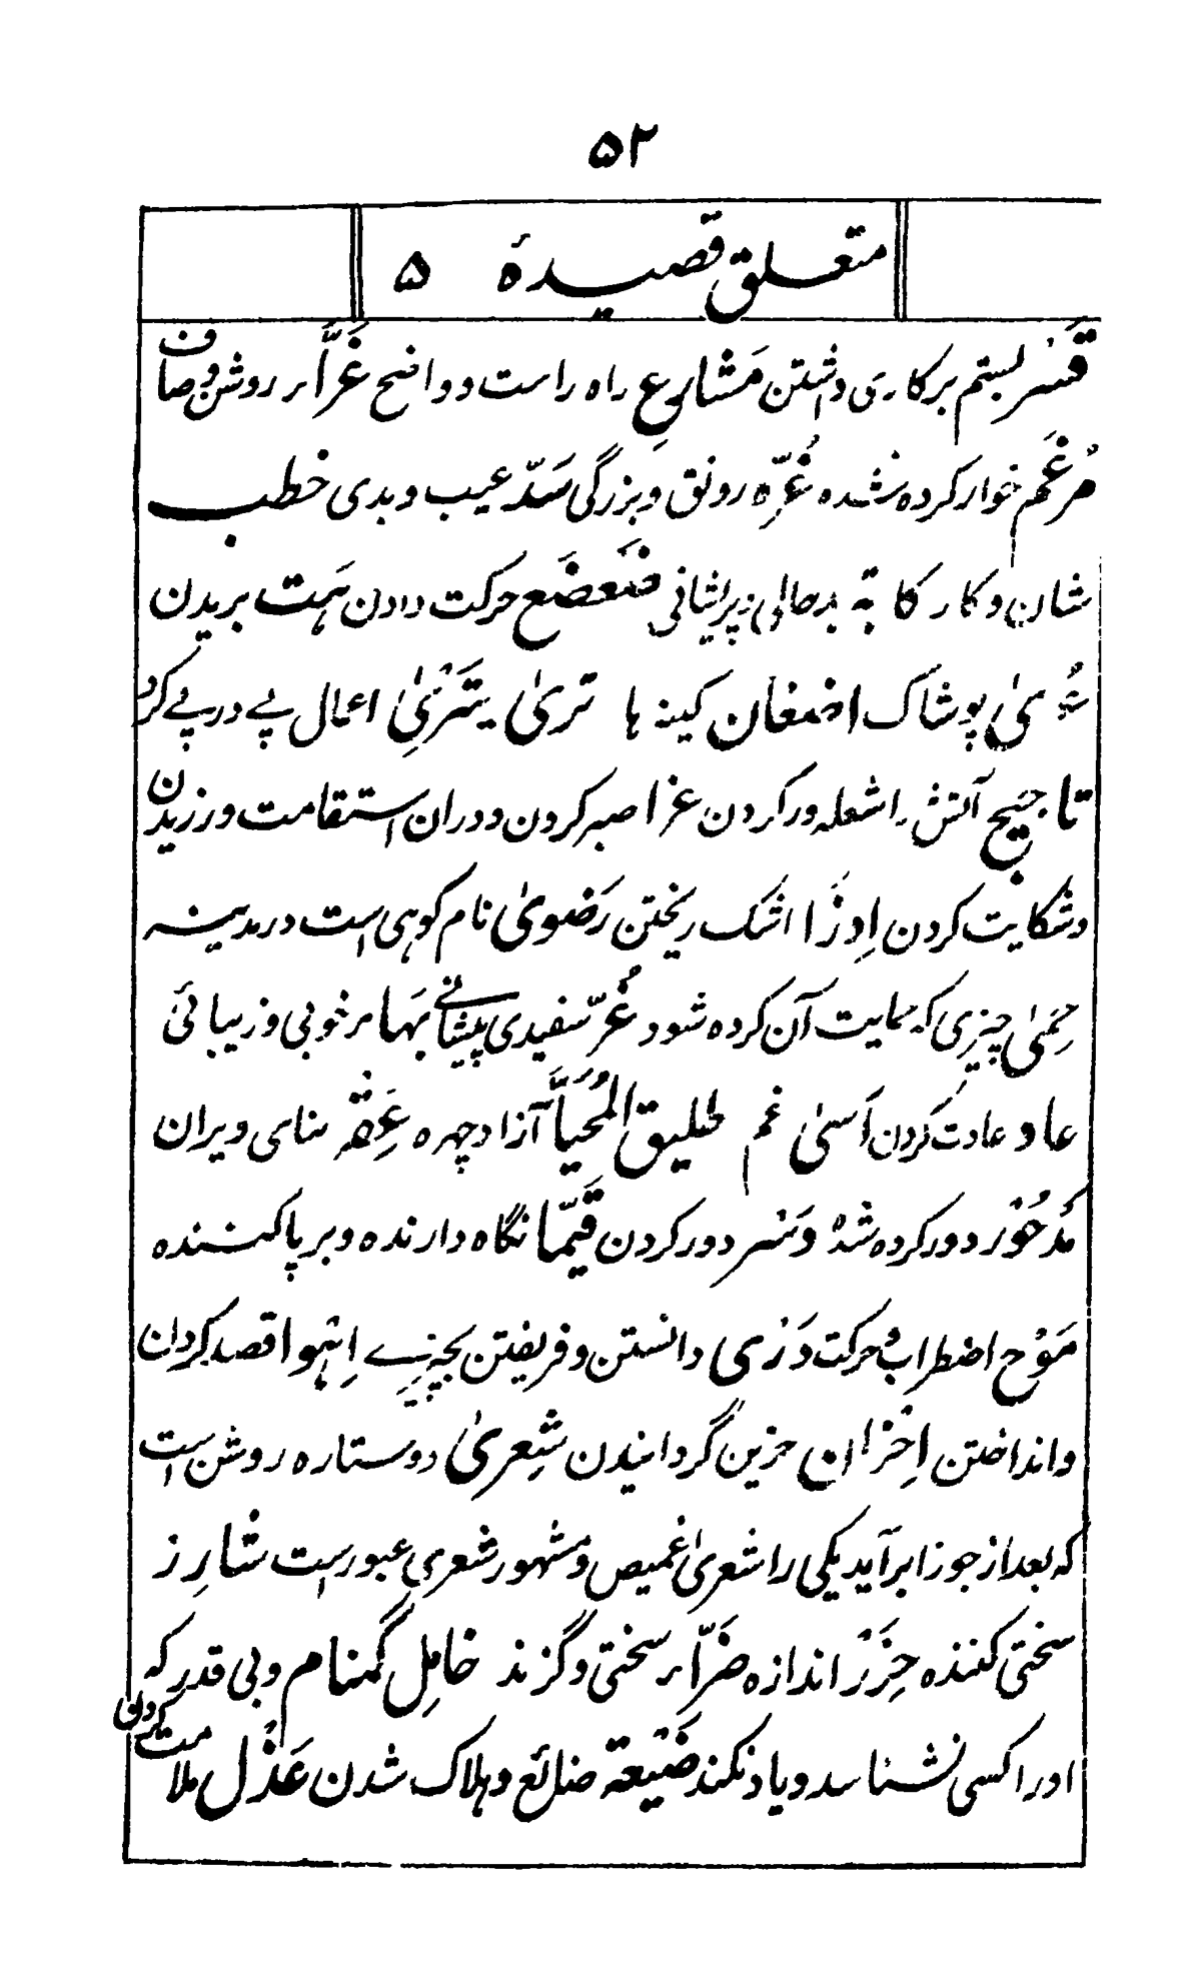 ۵۲
متعلق قصیدۂ ۵
قَسْر بستم برکاری داشتن مَشَارِع راه راست و واضح غَرَّاء روشن و صاف
مُرغَم خوار کرده شده غُرِّه رونق و بزرگی سَدّ عیب و بدی خطب
شان و کار کابَة بدحالی و پریشانی ضَعضَع حرکت دادن بَت بریدن
شُوىٰ پوشاک اضغان کینه ها تریٰ یتریٰ اعمال پے در پے کرد
تاجیج آتش را شعله ور کردن عزا صبر کردن و دران استقامت ورزیدن
و شکایت کردن اِدزَا اشک ریختن رَضویٰ نام کوهی است در مدینہ
حِمیٰ چیزی که حمایت آن کرده شود غُرّ سفیدی پیشانے بَهاء خوبی و زیبائی
عاد عادت کردن اَسیٰ غم طلیق المُحیَّا آزاد چهره عَفِه بنای ویران
مَدحُوْر دور کرده شده وَسْر دور کردن قَیِّما نگاه دارنده و بر پا کننده
مَوْج اضطراب و حرکت دَرْی دانستن و فریفتن بچیزے اِنْهوا قصد کردن
و انداختن اِحْزان حزین گردانیدن شِعریٰ دو ستاره روشن است
که بعد از جوزا برآید یکی را شعریٰ غمیص و مشهور شعریِ عبور است شارِز
سختی کننده حِزَرْ اندازه ضَرَّاء سختی و گزند خامِل گمنام و بی قدر که
او را کسی نشناسد و یاد نکند ضَیْعة ضائع و هلاک شدن عَذْل ملامت کردن